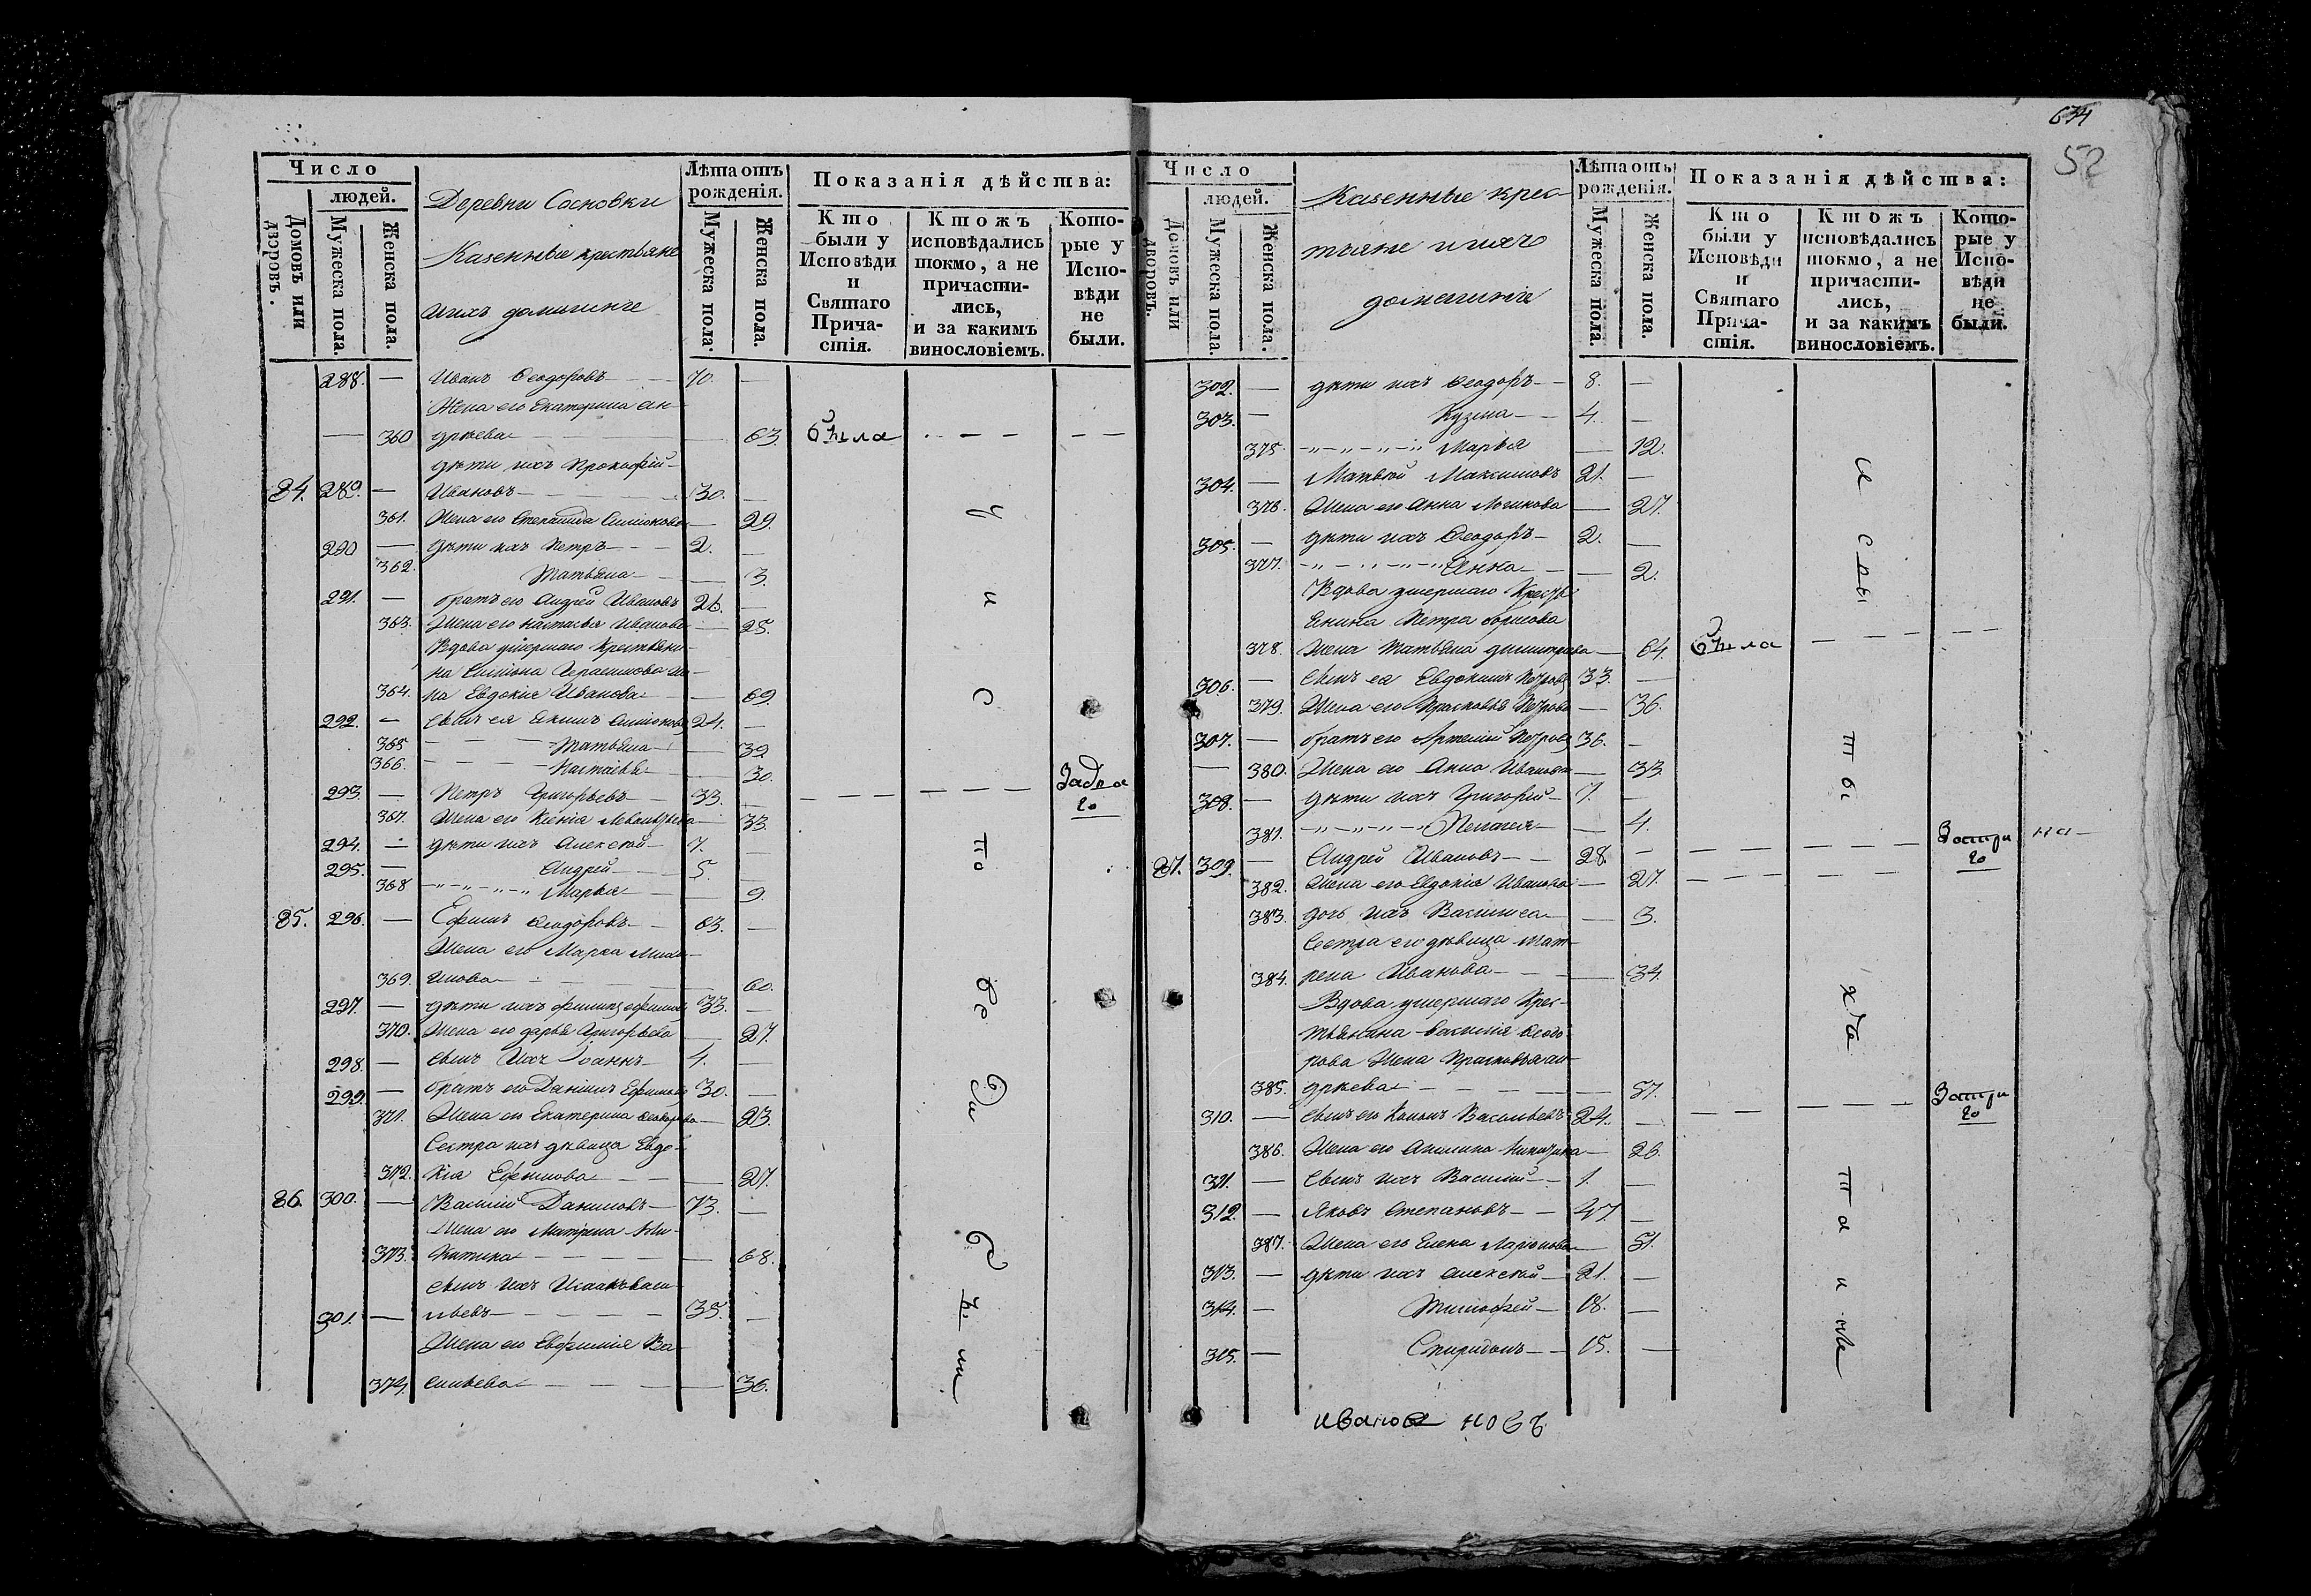 634
52
Число
людей.
Домовъ или дворовъ.
Мужеска пола.
Женска пола.
Деревни Сосновки
Казенные крестьяне
и ихъ домашние
Лѣта отъ рожденія.
Мужеска пола.
Женска пола.
Показанія дѣйства:
Кто были у Исповѣди и Святаго Причастія.
Ктожъ исповѣдались токмо, а не причастились, и за какимъ винословіемъ.
Которые у Исповѣди не были.
288. — Иванъ Феодоровъ — 70. —
Жена его Екатерина Ан-
— 360 дрѣева — 63 была
дѣти ихъ Прокофій
84. 289. — Ивановъ — 30. —
361. Жена его Степанида Симіонова — 29.
290 — дѣти ихъ Петръ — 2. —
362. Татьяна — 3.
291. — братъ его Андрей Ивановъ 26. —
363. Жена его Настасья Иванова — 25.
Вдова умершаго Крестьяни-
на Симіона Герасимова же-
364. на Евдокія Иванова — 69.
292. — сынъ ея Екимъ Симіоновъ 24. —
365 Татьяна — 39
366. Настасья — 30.
293. — Петръ Григорьевъ — 33. —
367. Жена его Ксенія — 33.
294. — дѣти ихъ Алексѣй — 7. —
295. — Андрей — 5. —
368 Марья — 9.
85. 296. — Ефимъ Феодоровъ — 63. —
Жена его Марѳа
369. — 60.
297. — дѣти ихъ Филипъ Ефимовъ 33. —
370. Жена его Дарья Григорьева — 27.
298. — сынъ ихъ Іоаннъ — 4. —
299. — братъ его Даніилъ Ефимовъ 30. —
371. Жена его Екатерина Феодорова — 23.
Сестра ихъ дѣвица Евдо-
372. кія Ефимова — 27.
86. 300. — Василій Даниловъ — 73. —
Жена его Матрена Ни-
373. китина — 68.
сынъ ихъ Исаакъ Васи-
301. — льевъ — 35. —
Жена его Евфимія Ва-
374. сильева — 36.
Число
людей.
Домовъ или дворовъ.
Мужеска пола.
Женска пола.
Казенные крес-
тьяне и ихъ
домашние
Лѣта отъ рожденія.
Мужеска пола.
Женска пола.
Показанія дѣйства:
Кто были у Исповѣди и Святаго Причастія.
Ктожъ исповѣдались токмо, а не причастились, и за какимъ винословіемъ.
Которые у Исповѣди не были.
302. — дѣти ихъ Феодоръ — 8. —
303. — Кузма — 4. —
375. Марья — 12.
304. — Матвѣй Максимовъ 21. —
376. Жена его Анна Логинова — 27.
305. — дѣти ихъ Феодоръ — 2. —
377. Анна — 2.
Вдова умершаго Кресть-
янина Петра Борисова
378. Жена Татьяна Димитрева — 64. была
306. — сынъ ея Евдокимъ Петровъ 33. —
379. Жена его Прасковья Петрова — 36.
307. — братъ его Артемій Петровъ 36. —
— 380. Жена его Анна Иванова — 33.
308. — дѣти ихъ Григорій — 7. —
381. Пелагея — 4.
87. 309. — Андрей Ивановъ — 28. —
382. Жена его Евдокія Иванова — 27.
383. дочь ихъ Василиса — 3.
Сестра его дѣвица Мат-
384. рена Иванова — 34.
Вдова умершаго Крес-
тьянина Василія Феодо-
рова Жена Прасковья Ан-
385. дрѣева — 57.
310. — сынъ его Кононъ Васильевъ 24. —
386. Жена его Акилина Никитина — 26.
311. — сынъ ихъ Василій — 1. —
312. — Яковъ Степановъ — 47. —
387. Жена его Елена Ларіонова — 51.
313. — дѣти ихъ Алексѣй — 21. —
314. — Тимофей — 18. —
315. — Спиридонъ — 15. —